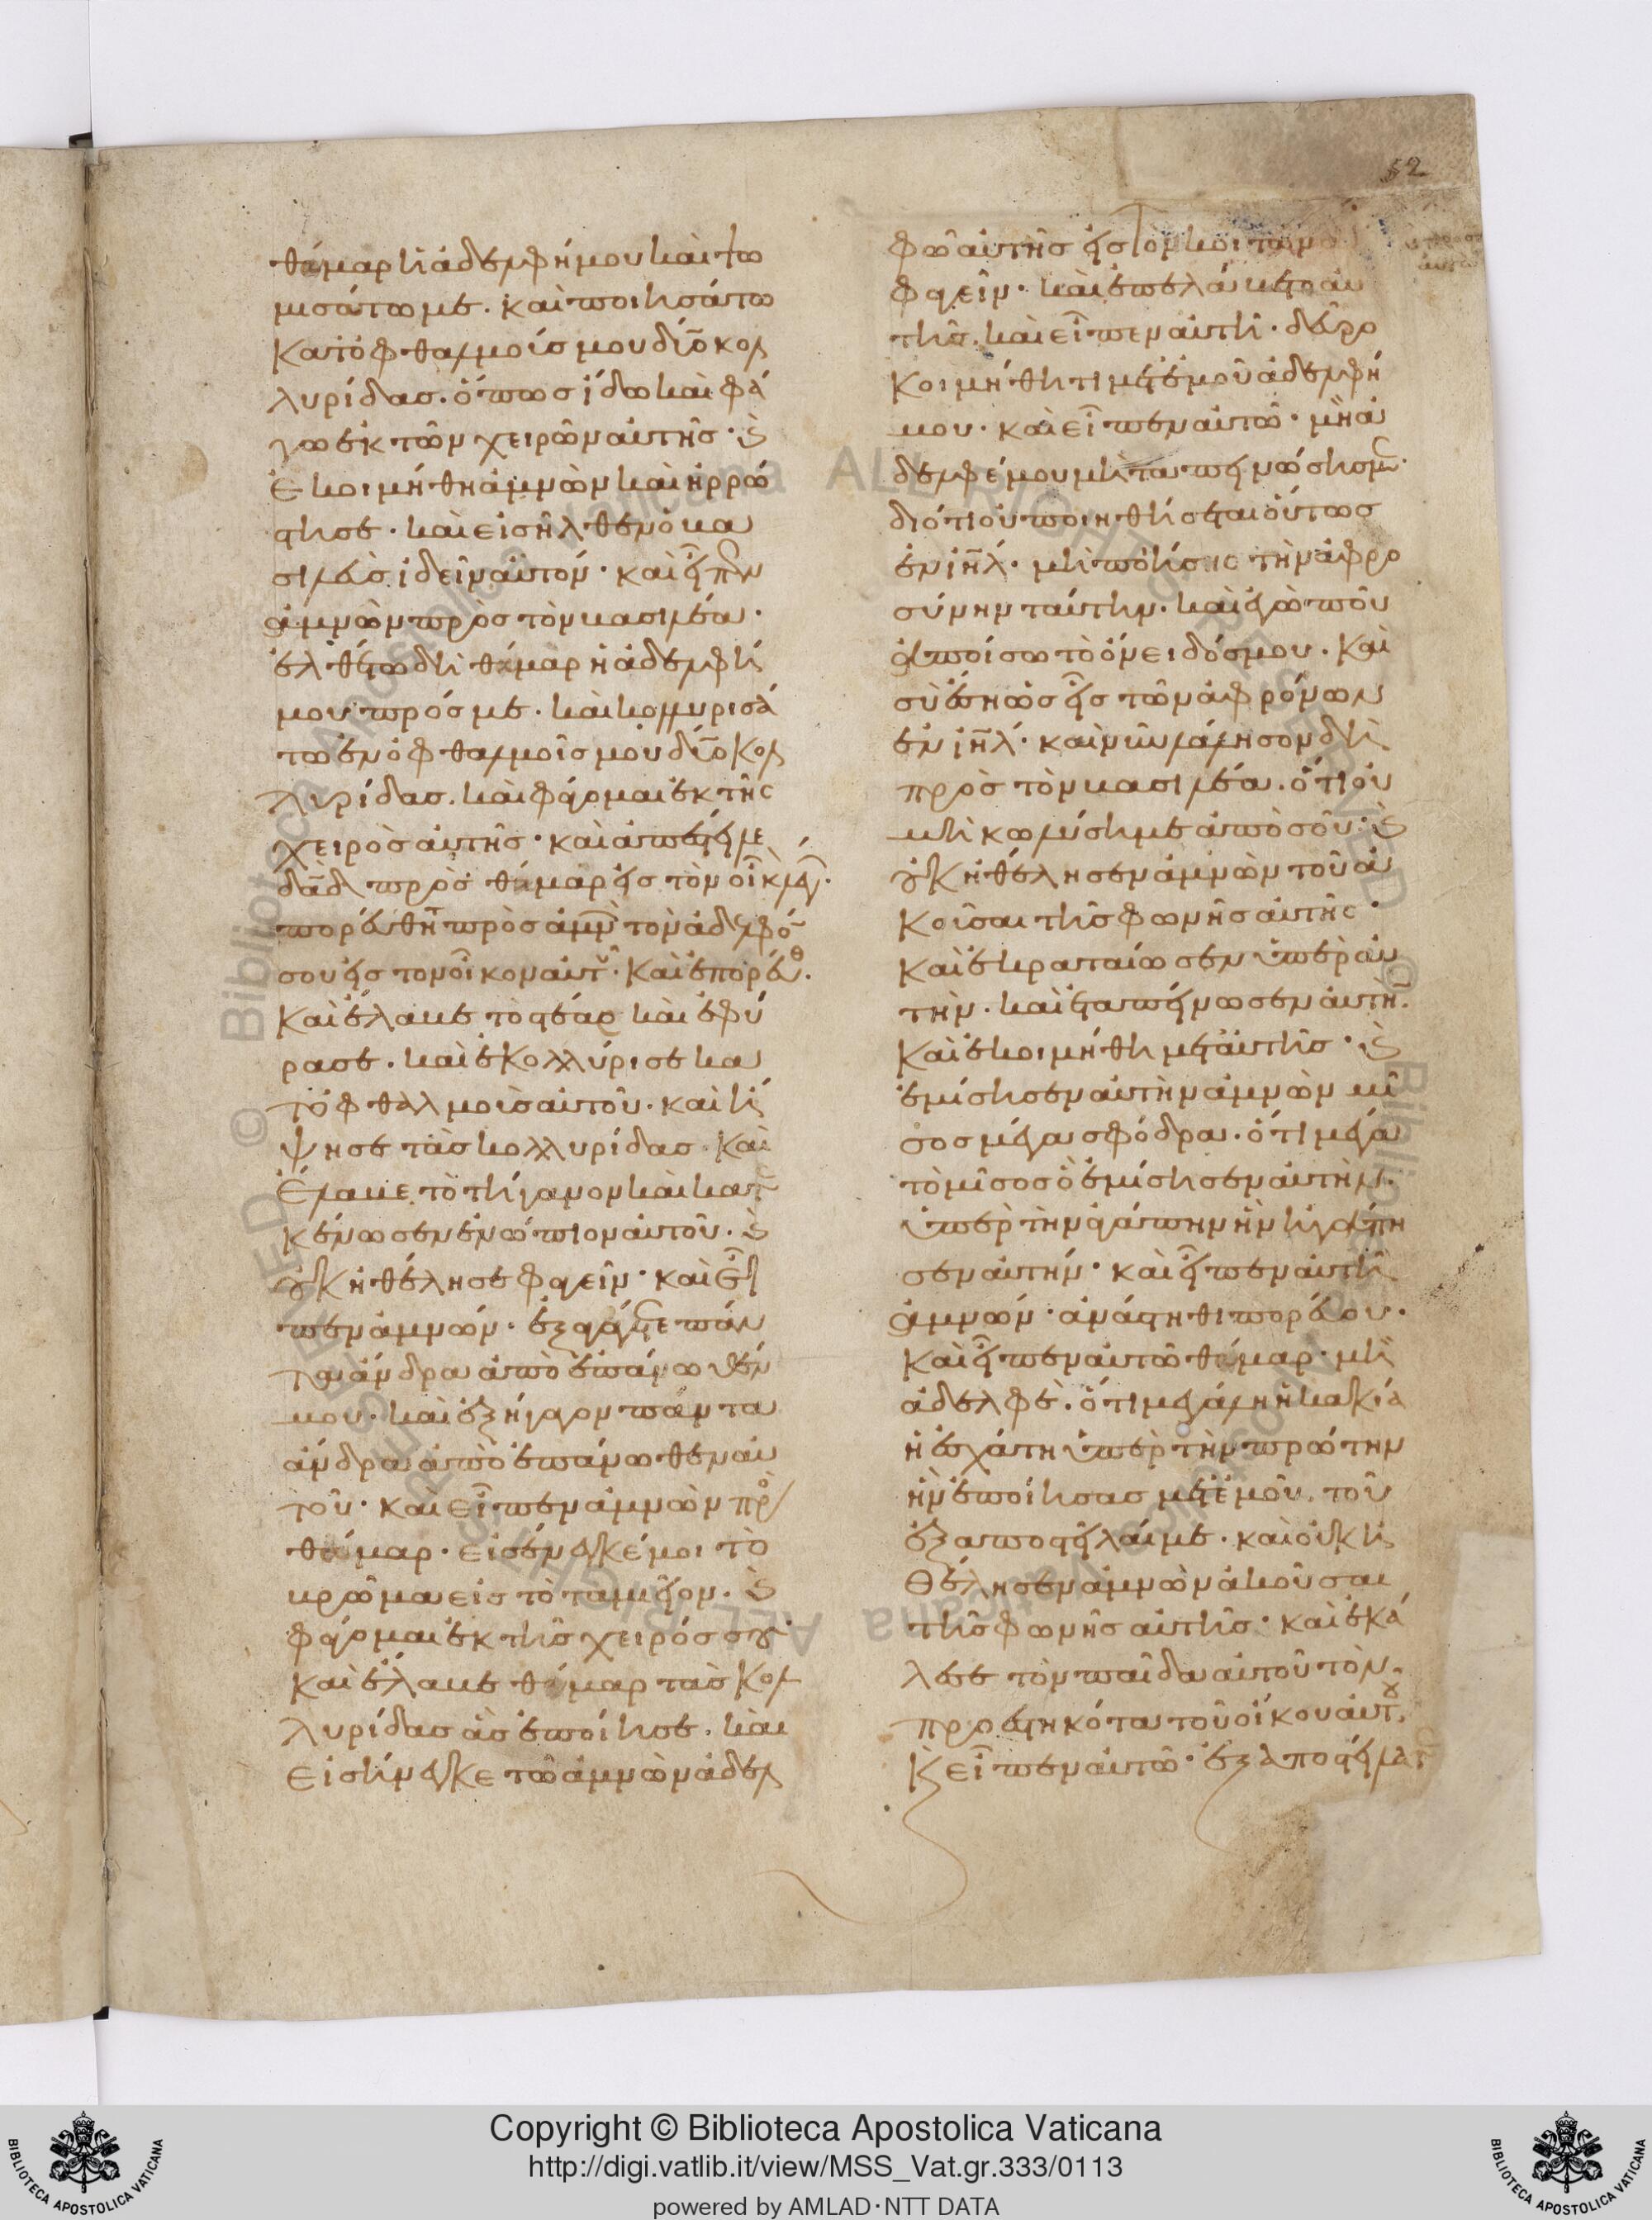 52
θάμαρ ἡ ἀδελφή μου καὶ ψω
μισάτω με. καὶ ποιησάτω
κατ' ὀφθαλμοίς μου δύο κολ
λυρίδας. ὅπως ἴδω καὶ φά
γω ἐκ τῶν χειρῶν αὐτῆς· κ(αὶ)
ἐκοιμήθη ἀμνὼν καὶ ἠρρώ
στησε. καὶ εἰσῆλθεν ὁ βα
σιλεὺς ἰδεῖν αὐτόν· καὶ εἶπεν
ἀμνὼν πρὸς τὸν βασιλέα·
ἐλθέτω δὴ θάμαρ ἡ ἀδελφή
μου πρός με. καὶ κολλυρισά
τω ἐν ὀφθαλμοῖς μου δύο κολ
λυρίδας. καὶ φάγομαι ἐκ τῆς
χειρὸς αὐτῆς· καὶ ἀπέστειλε
δᾱδ πρὸς θάμαρ εἰς τὸν οἶκ λεγ·
πορεύθητ πρὸς ἀμν τὸν ἀδελφό
σου εἰς τὸν οἶκον αὐτοῦ· καὶ ἐπορεύθ.
καὶ ἔλαβε τὸ σταῖς καὶ ἐφύ
ρασε. καὶ ἐκολλύρισε κα
τ' ὀφθαλμοὶς αὐτοῦ. καὶ ἥ
ψησε τὰς κολλυρίδας. καὶ
ἔλαβε τὸ τήγανον καὶ κατ
κένωσεν ἐνώπιον αὐτοῦ. κ(αὶ)
οὐκ ἠθέλησε φαγεῖν· καὶ εἶ
πεν ἀμνών. ἐξαγάγετε πάν
τα ἄνδρα ἀπὸ ἐπάνωθέν
μου. καὶ ἐξήγαγον πάντα
ἄνδρα ἀπὸ ἐπάνωθεν αὐ
τοῦ· καὶ εἶπεν ἀμνὼν πρὸ
θάμαρ. εἰσένεγκέ μοι τὸ
βρῶμα εἰς τὸ ταμιεῖον. κ(αὶ)
φάγομαι ἐκ τῆς χειρός σου·
καὶ ἔλαβε θάμαρ τὰς κολ
λυρίδας ἃς ἐποίησε. καὶ
εἰσήνεγκε τῶ ἀμνὼν ἀδελ
φῶ αὐτῆς εἰς τὸν κοιτῶνα
φαγεῖν· καὶ ἐπελάβετο αὐ
τῆς. καὶ εἶπεν αὐτῆ. δεῦρο
κοιμήθητι μετ' ἐμοῦ ἀδελφή
μου· καὶ εἶπεν αὐτῶ· μὴ ἀ
δελφέ μου μὴ ταπεινώσης με·
διότι οὐ ποιηθήσεται οὕτως
ἐν ἰη̄λ· μὴ ποιήσης τὴν ἀφρο
σύνην ταύτην. καὶ ἐγὼ ποῦ
ἀποίσω τὸ ὄνειδός μου. καὶ
σὺ ἔση ὡς εἷς τῶν ἀφρόνων
ἐν ἰη̄λ· καὶ νῦν λάλησον δὴ
πρὸς τὸν βασιλέα. ὅτι οὐ
μὴ κωλύση με ἀπὸ σοῦ· κ(αὶ)
οὐκ ἠθέλησεν ἀμνὼν τοῦ ἀ
κοῦσαι τῆς φωνῆς αὐτῆς·
καὶ ἐκραταίωσεν ὑπὲρ αὐ
τήν. καὶ ἐταπείνωσεν αὐτήν.
καὶ ἐκοιμήθη μετ' αὐτῆς· κ(αὶ)
ἐμίσησεν αὐτὴν ἀμνὼν μῖ
σος μέγα σφόδρα. ὅτι μέγα
τὸ μῖσος ὃ ἐμίσησεν αὐτὴν
ὑπὲρ τὴν ἀγάπην ἣν ἠγάπη
σεν αὐτήν· καὶ εἶπεν αὐτῆ
ἀμνών· ἀνάστηθι πορεύου.
καὶ εἶπεν αὐτῶ θάμαρ· μὴ
ἀδελφὲ. ὅτι μεγάλη ἡ κακία
ἡ ἐσχάτη ὑπὲρ τὴν πρώτην
ἣν ἐποίησας μετ' ἐμοῦ. τοῦ
ἐξαποστεῖλαί με. καὶ οὐκ ἠ
θέλησεν ἀμνὼν ἀκοῦσαι
τῆς φωνῆς αὐτῆς· καὶ ἐκά
λεσε τὸν παῖδα αὐτοῦ τὸν
προεστηκότα τοῦ οἴκου αὐτοῦ.
κ(αὶ) εἶπεν αὐτῶ· ἐξαποστείλατ
Copyright © Biblioteca Apostolica Vaticana
http://digi.vatlib.it/view/MSS_Vat.gr.333/0113
powered by AMLAD·NTT DATA